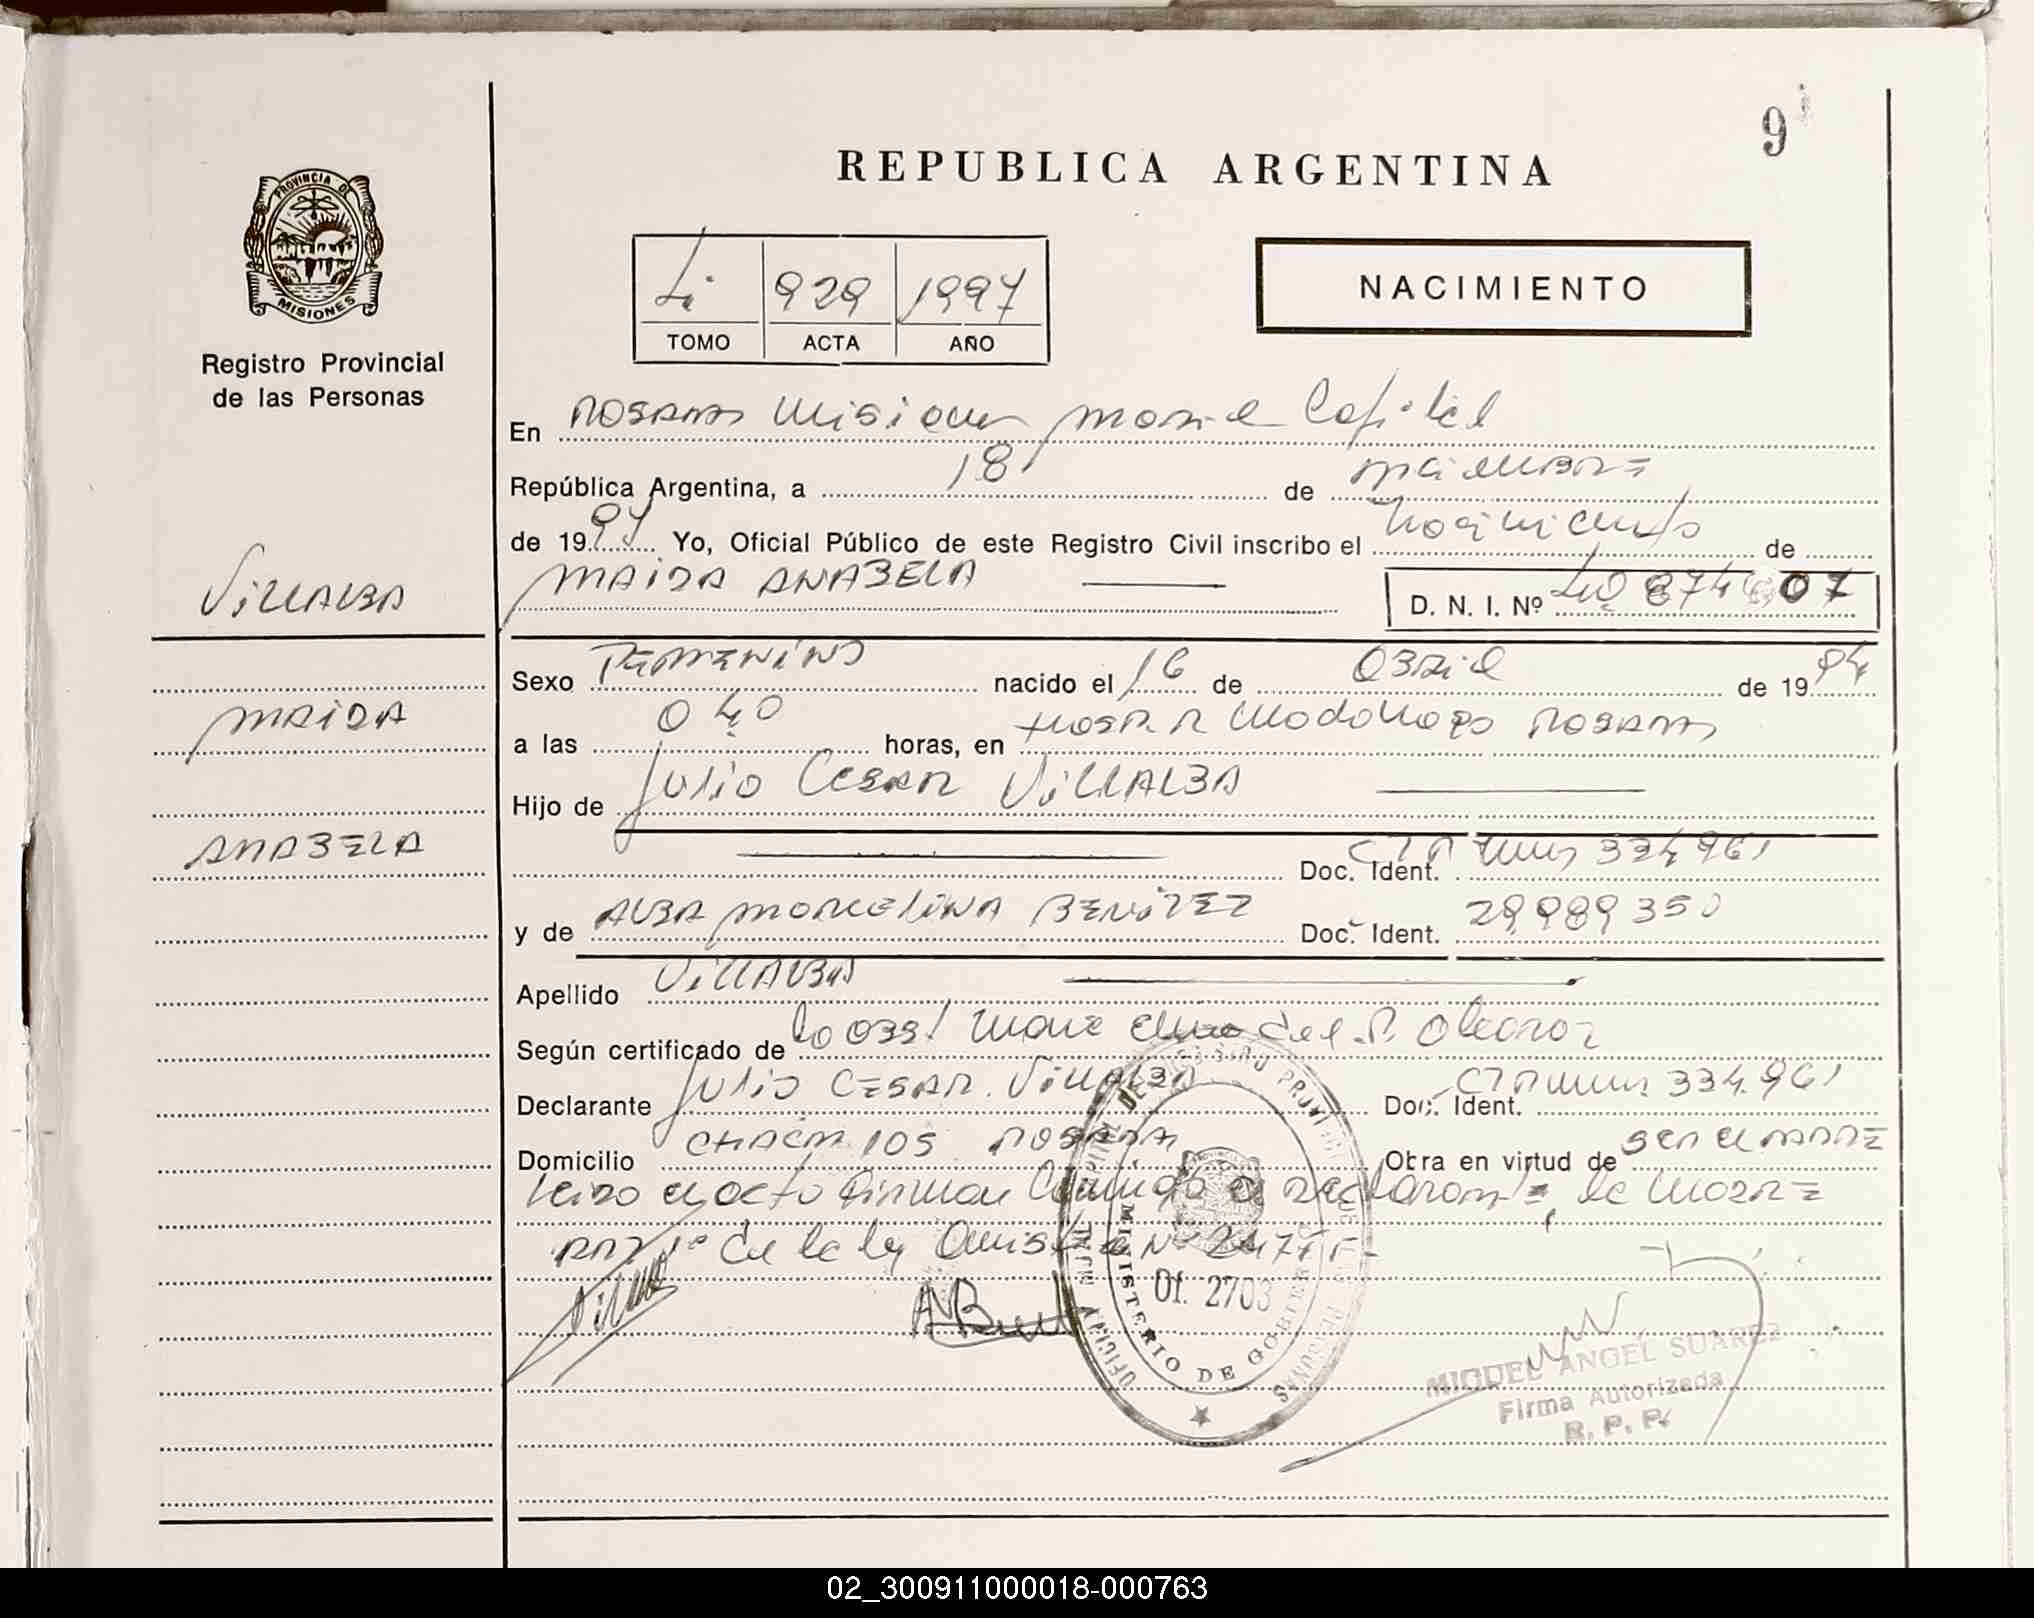 9
REPUBLICA ARGENTINA
PROVINCIA DE
MISIONES
Registro Provincial
de las Personas
929 1997
TOMO ACTA AÑO
NACIMIENTO
En Posadas Misiones Capital
República Argentina, a 18 de
de 1997 Yo, Oficial Público de este Registro Civil inscribo el Nacimiento de
VILLALBA
MAIDA ANABELA D. N. I. Nº
Sexo FEMENINO nacido el 16 de ABRIL de 1994
MAIDA
a las 0 40 horas, en POSADAS
Hijo de Julio Cesar VILLALBA
ANABELA
Doc. Ident. 334961
y de ALBA MARCELINA BENITEZ Doc. Ident. 29989350
Apellido VILLALBA
Según certificado de
Declarante Julio CESAR VILLALBA Doc. Ident. 334.961
Domicilio CHACRA 105 POSADAS Obra en virtud de SER EL PADRE
Leido el acta firman conmigo el declarante, la madre
de la ley
REGISTRO PROVINCIAL DE LAS PERSONAS
MINISTERIO DE GOBIERNO
Of. 2703
MIGUEL ANGEL SUAREZ
Firma Autorizada
R. P. P.
02_300911000018-000763